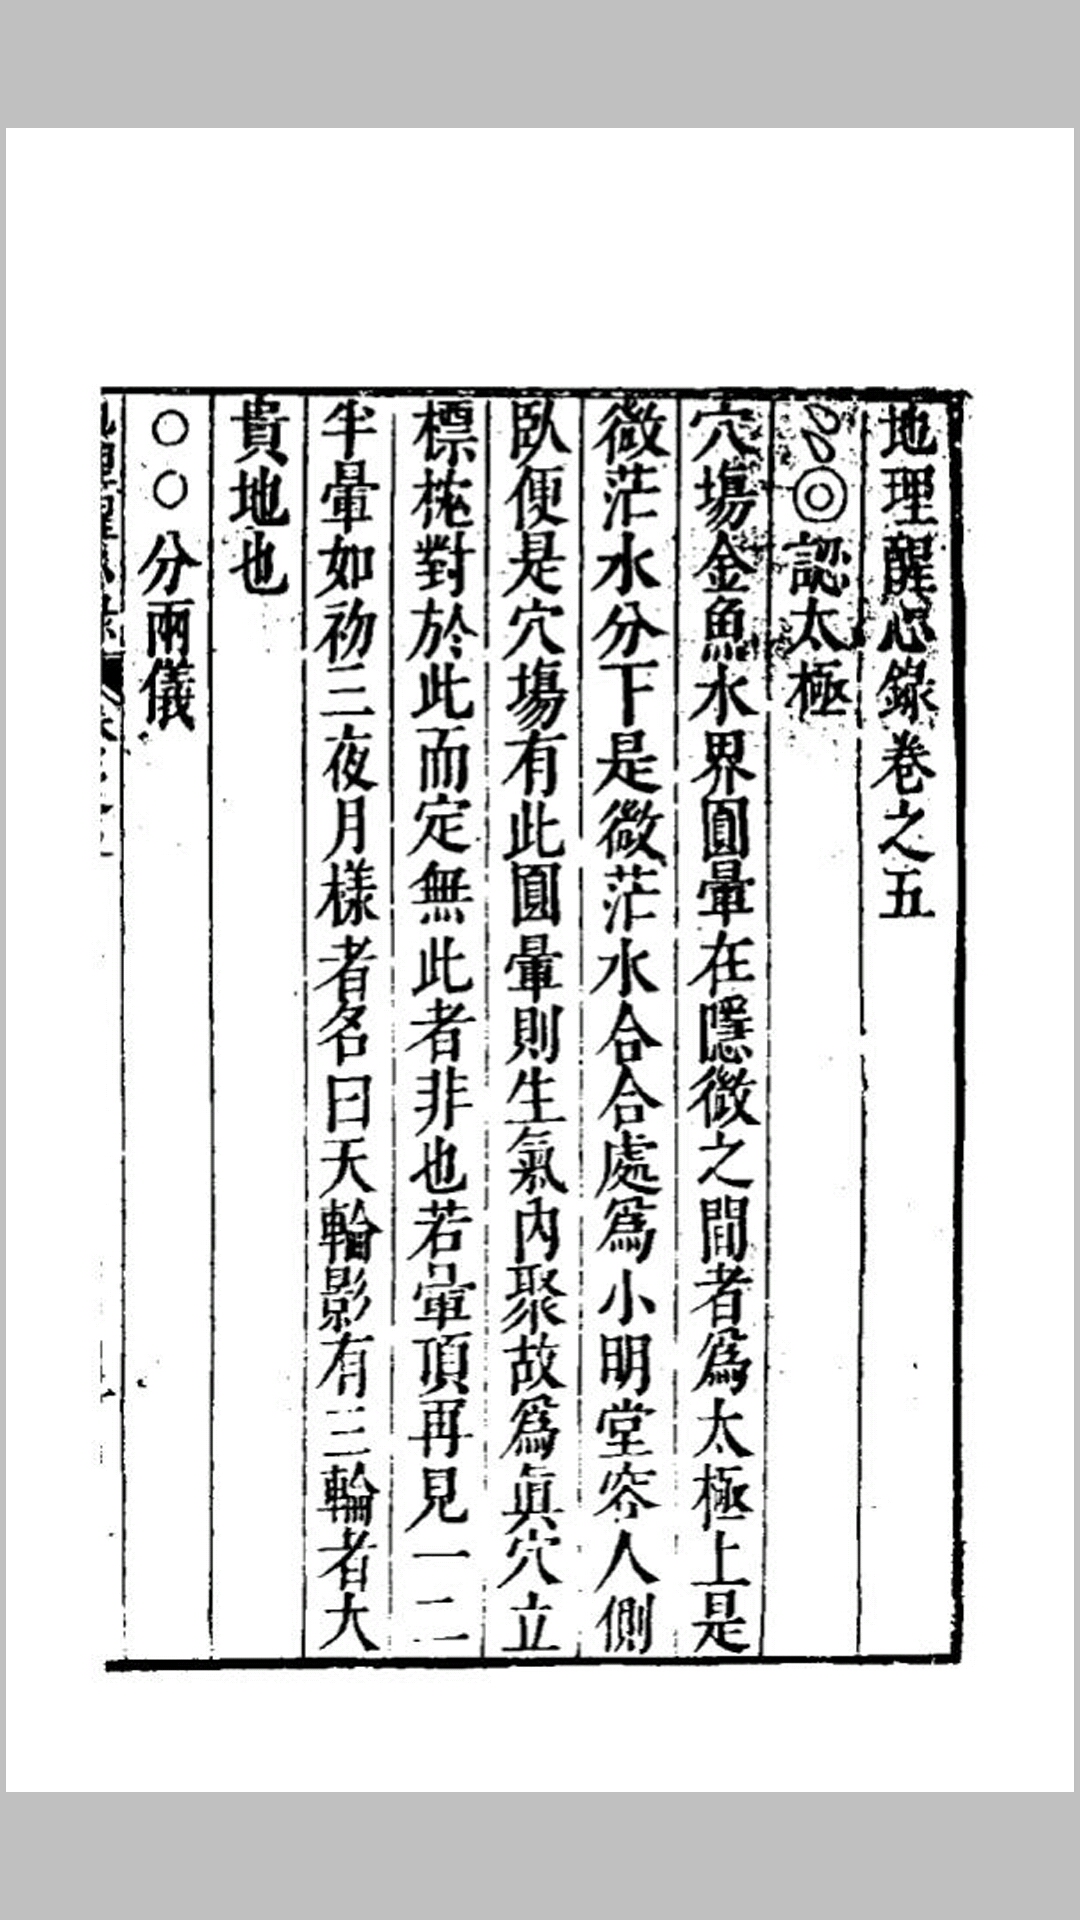 地理醒心錄卷之五
◎認太極
穴塲金魚水界圓暈在隱微之間者爲太極上是
微茫水分下是微茫水合合處爲小明堂容人側
臥便是穴塲有此圓暈則生氣內聚故爲眞穴立
標枕對於此而定無此者非也若暈頂再見一二
半暈如初三夜月樣者名曰天輪影有三輪者大
貴地也
○○分兩儀